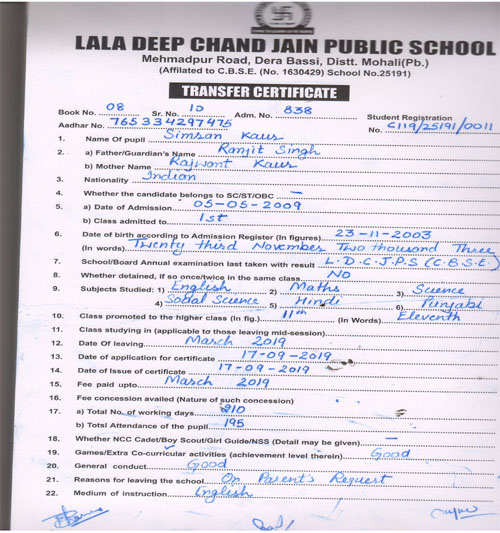 LALA DEEP CHAND JAIN PUBLIC SCHOOL
Mehmadpur Road, Dera Bassi, Distt. Mohali(Pb.)
(Affiliated to C.B.S.E. (No. 1630429) School No.25191)
TRANSFER CERTIFICATE
Book No. 08 Sr. No. 10 Adm. No. 838 Student Registration
Aadhar No. 765334297475 No. C119/25191/0011
1. Name Of pupil Simran Kaur
2. a) Father/Guardian's Name Ranjit Singh
b) Mother Name Rajwant Kaur
3. Nationality Indian
4. Whether the candidate belongs to SC/ST/OBC —
5. a) Date of Admission 05-05-2009
b) Class admitted to 1st
6. Date of birth according to Admission Register (In figures) 23-11-2003
(In words) Twenty third November Two thousand Three
7. School/Board Annual examination last taken with result L.D.C.J.P.S (C.B.S.E)
8. Whether detained, if so once/twice in the same class NO
9. Subjects Studied: 1) English 2) Maths 3) Science
4) Social Science 5) Hindi 6) Punjabi
10. Class promoted to the higher class (In fig.) 11th (In Words) Eleventh
11. Class studying in (applicable to those leaving mid-session)
12. Date Of leaving March 2019
13. Date of application for certificate 17-09-2019
14. Date of Issue of certificate 17-09-2019
15. Fee paid upto March 2019
16. Fee concession availed (Nature of such concession)
17. a) Total No. of working days 210
b) Total Attendance of the pupil 195
18. Whether NCC Cadet/Boy Scout/Girl Guide/NSS (Detail may be given) —
19. Games/Extra Co-curricular activities (achievement level therein) Good
20. General conduct Good
21. Reasons for leaving the school On Parent's Request
22. Medium of instruction English